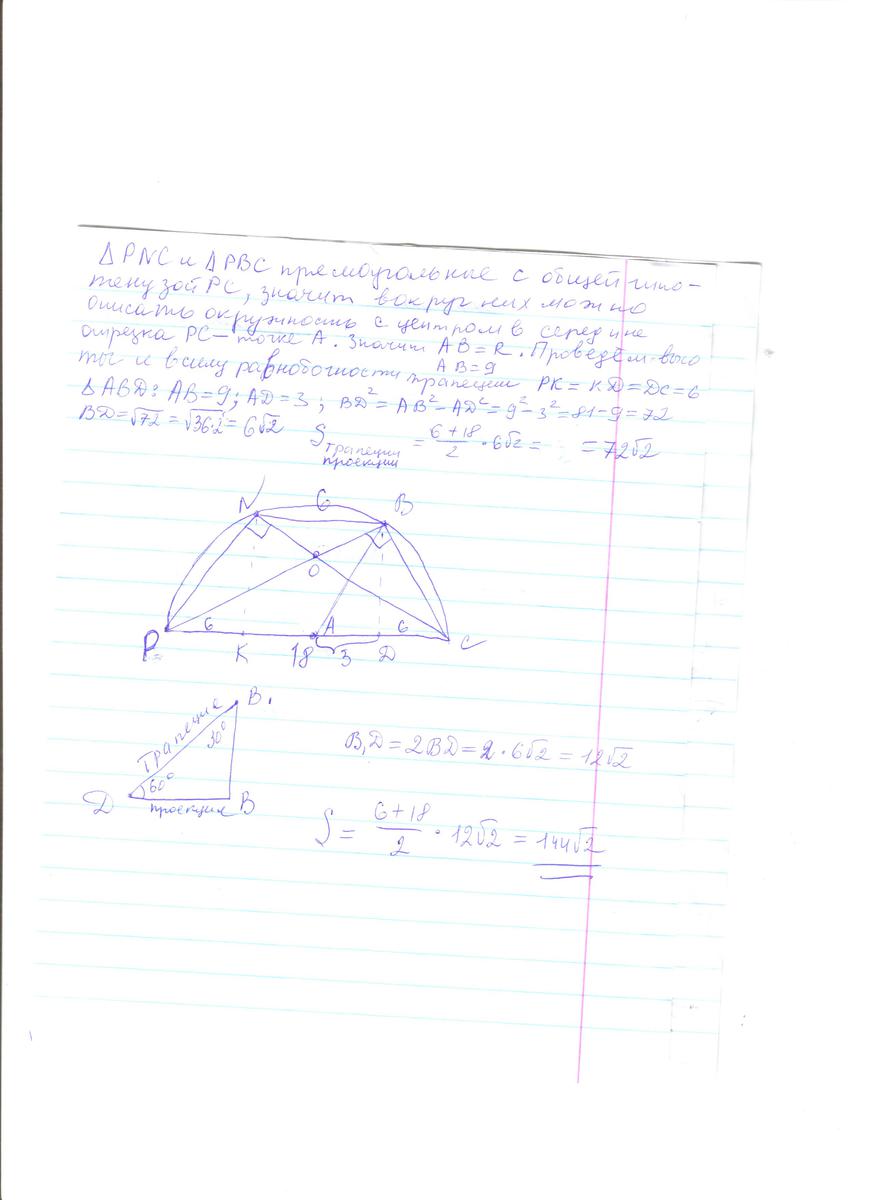 ΔPNC и ΔPBC прямоугольные с общей гипо-
тенузой PC, значит вокруг них можно
описать окружность с центром в середине
отрезка PC – точке A. Значит AB = R. Проведём высо
AB = 9
ты и в силу равнобочности трапеции PK = KD = DC = 6
ΔABD: AB = 9; AD = 3; BD² = AB² - AD² = 9² - 3² = 81 - 9 = 72
BD = √72 = √36·2 = 6√2
S трапеции проекции = (6+18)/2 · 6√2 = = 72√2
N 6 B
O
P 6 K 18 A 3 D 6 C
Трапеция B₁
30°
60°
D проекция B
B₁D = 2BD = 2 · 6√2 = 12√2
S = (6+18)/2 · 12√2 = 144√2